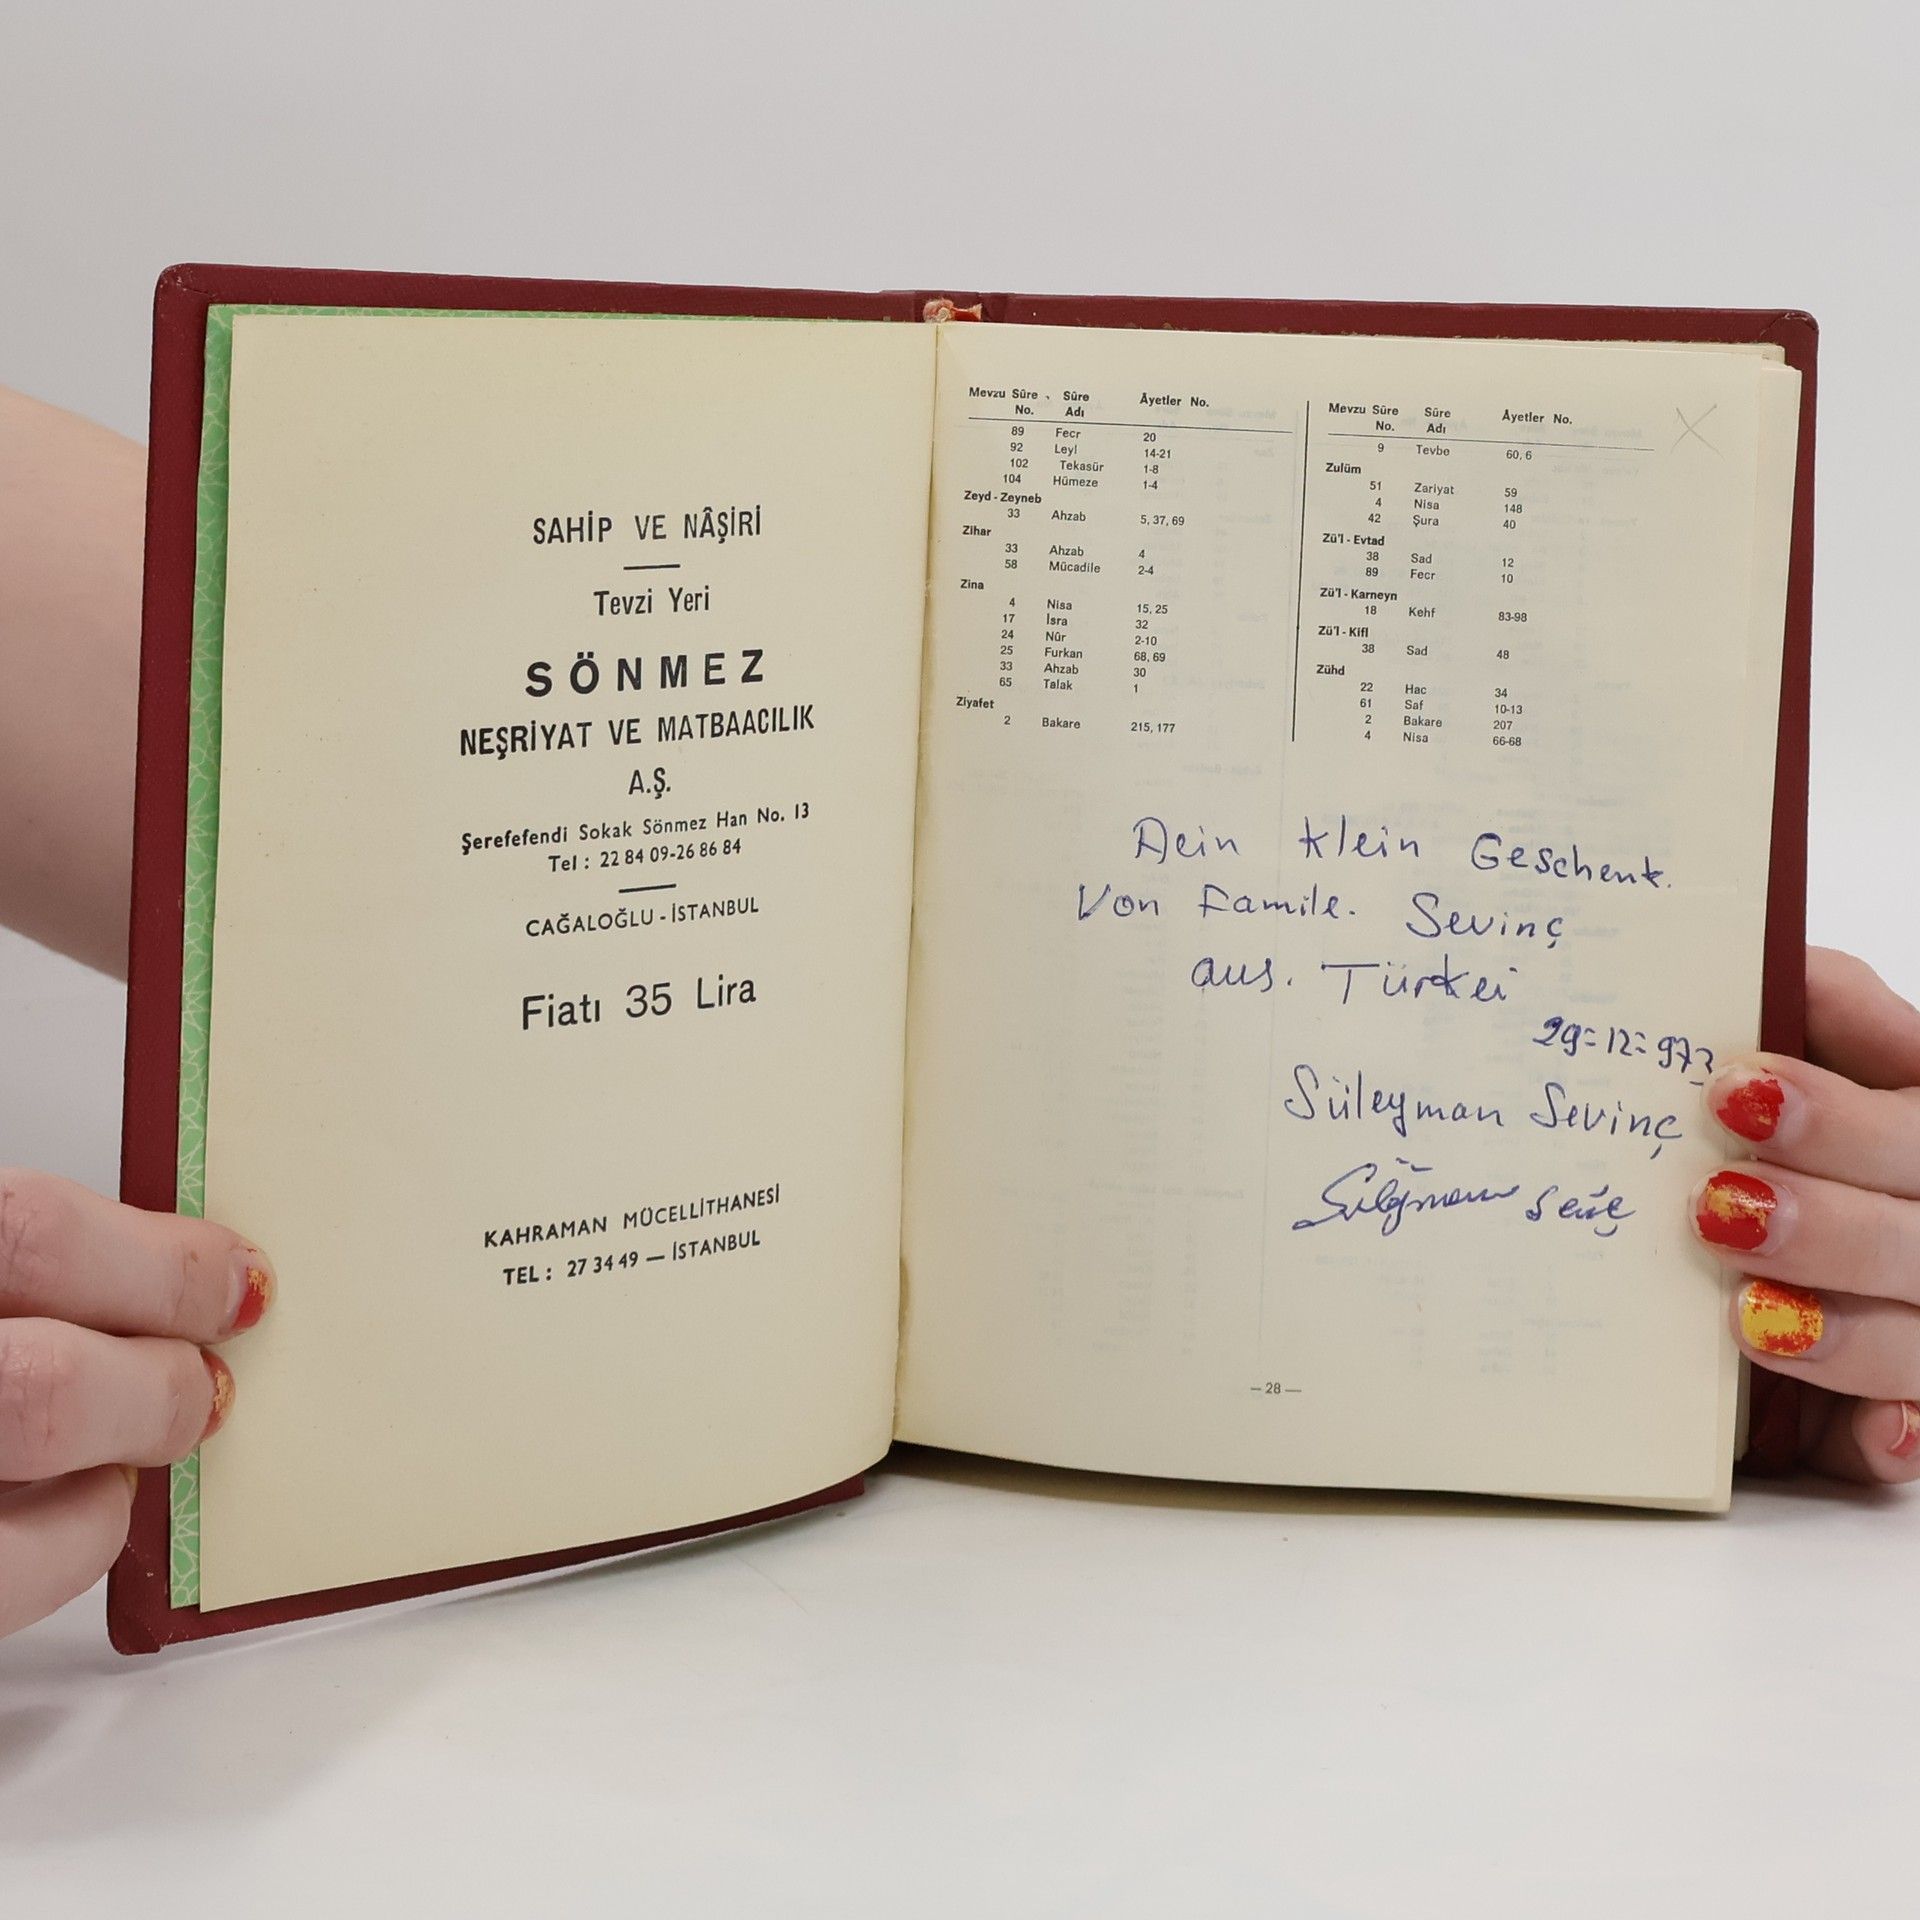 SAHİP VE NÂŞİRİ
Tevzi Yeri
SÖNMEZ
NEŞRİYAT VE MATBAACILIK
A.Ş.
Şerefefendi Sokak Sönmez Han No. 13
Tel : 22 84 09-26 86 84
CAĞALOĞLU - İSTANBUL
Fiatı 35 Lira
KAHRAMAN MÜCELLİTHANESİ
TEL : 27 34 49 — İSTANBUL
Mevzu Sûre Sûre Âyetler No.
No. Adı
89 Fecr 20
92 Leyl 14-21
102 Tekasür 1-8
104 Hümeze 1-4
Zeyd - Zeyneb
33 Ahzab 5, 37, 69
Zihar
33 Ahzab 4
58 Mücadile 2-4
Zina
4 Nisa 15, 25
17 İsra 32
24 Nûr 2-10
25 Furkan 68, 69
33 Ahzab 30
65 Talak 1
Ziyafet
2 Bakare 215, 177
Mevzu Sûre Sûre Âyetler No.
No. Adı
9 Tevbe 60, 6
Zulüm
51 Zariyat 59
4 Nisa 148
42 Şura 40
Zü'l - Evtad
38 Sad 12
89 Fecr 10
Zü'l - Karneyn
18 Kehf 83-98
Zü'l - Kifl
38 Sad 48
Zühd
22 Hac 34
61 Saf 10-13
2 Bakare 207
4 Nisa 66-68
Dein klein Geschenk.
Von Famile. Sevinç
aus. Türkei
29=12=973
Süleyman Sevinç
— 28 —